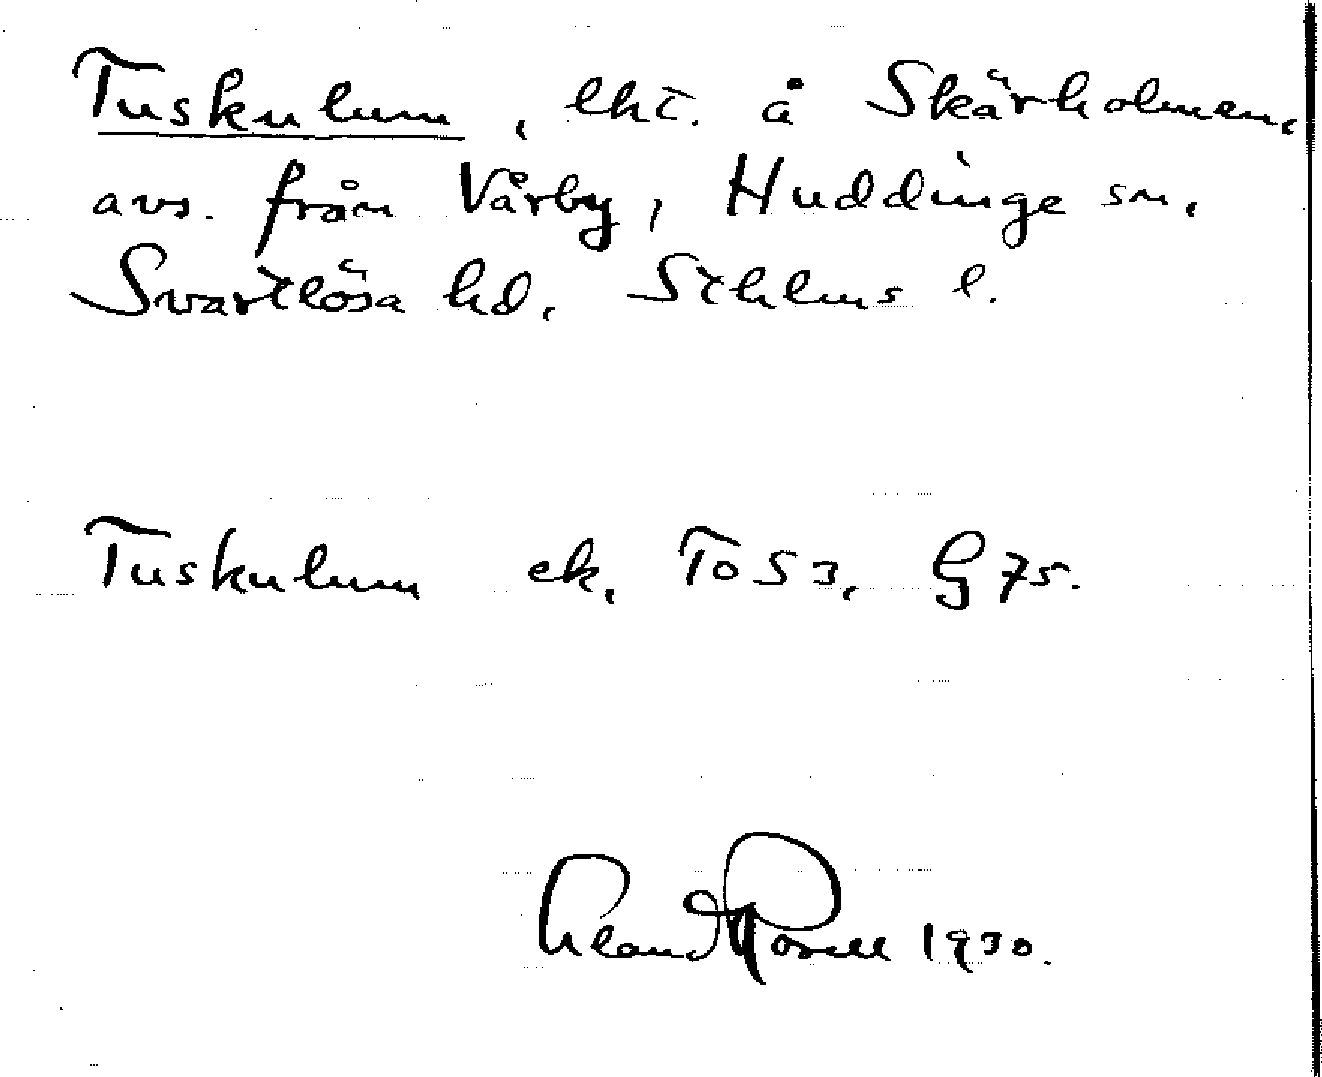 Tuskulum, lht. å Skärholmen,
avs. från Vårby, Huddinge sn,
Svartlösa hd, Sthlms l.
Tuskulum ek, To S 3, G 75.
1930.